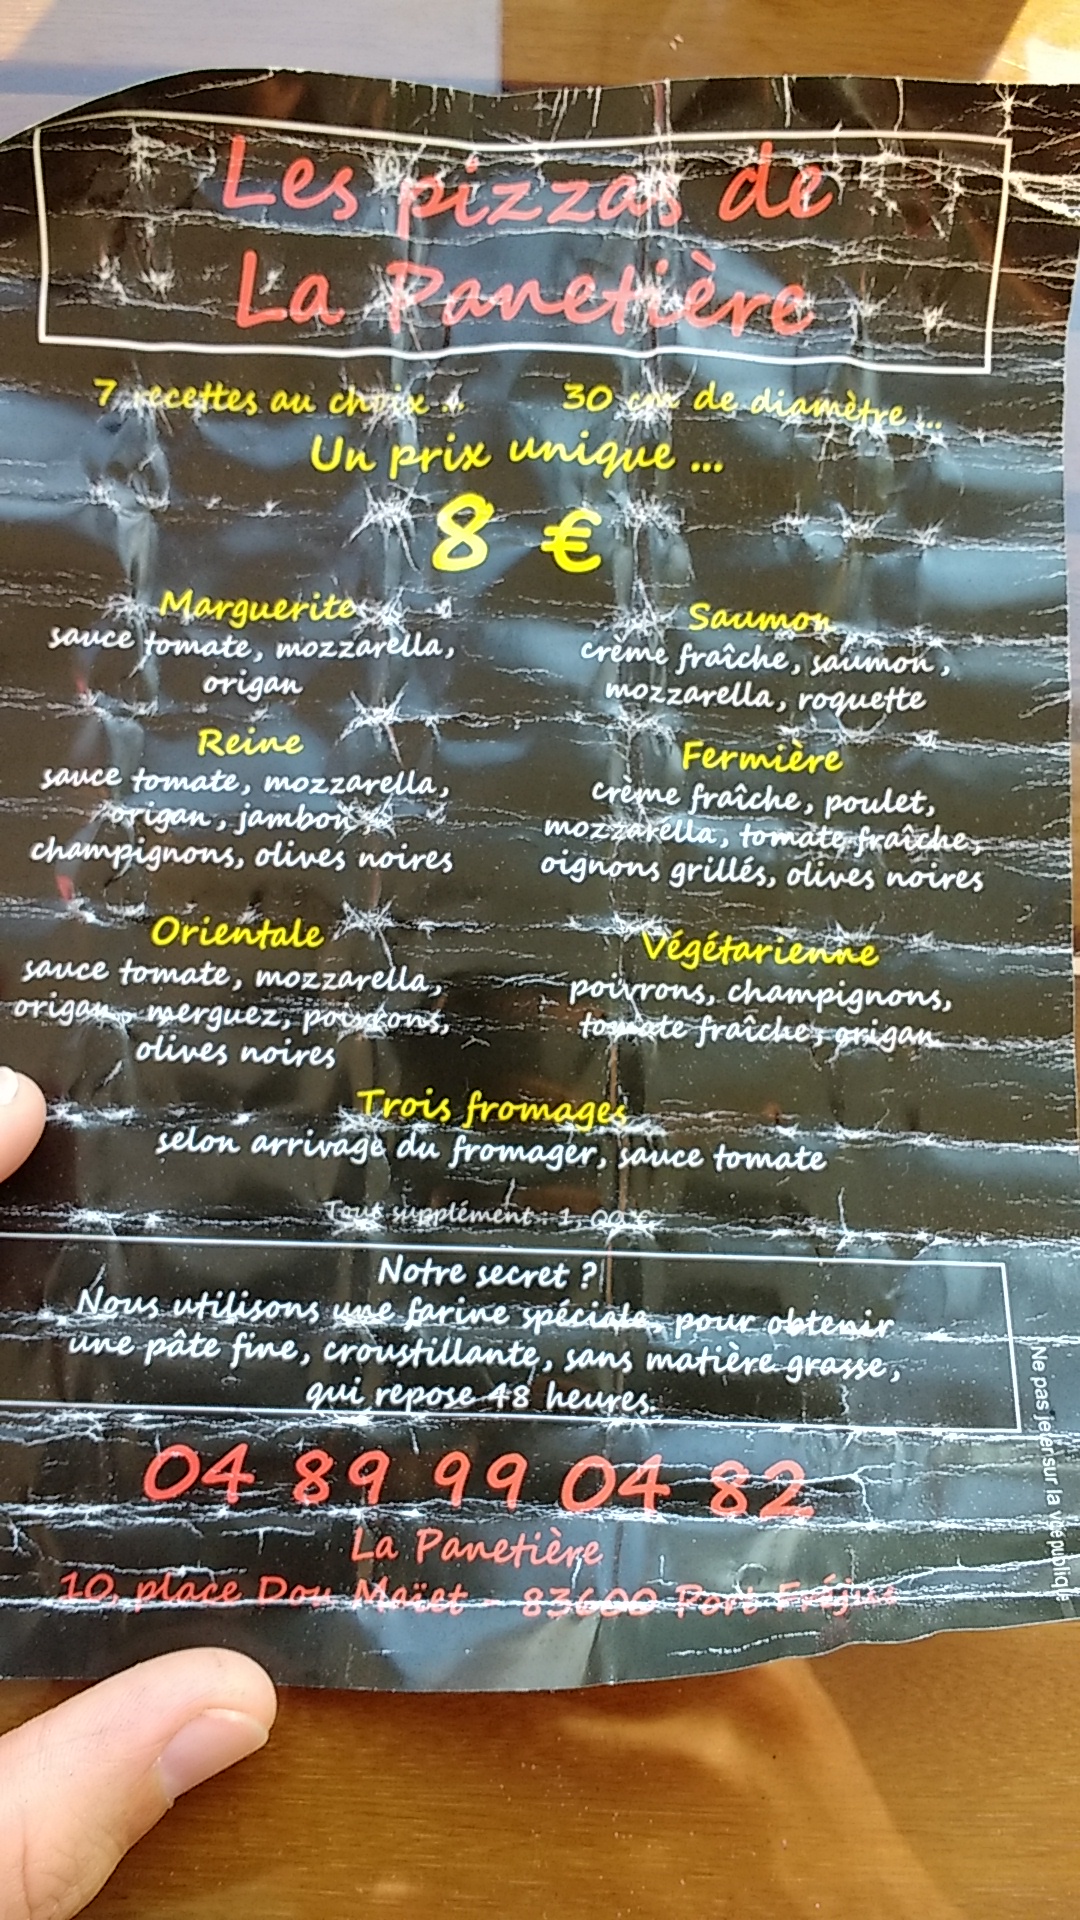 Les pizzas de
La Panetière
7 recettes au choix ...
30 cm de diamètre ...
Un prix unique ...
8 €
Marguerite
sauce tomate, mozzarella,
origan
Reine
sauce tomate, mozzarella,
origan, jambon
champignons, olives noires
Orientale
sauce tomate, mozzarella,
origan, merguez, poivrons,
olives noires
Saumon
crème fraîche, saumon,
mozzarella, roquette
Fermière
crème fraîche, poulet,
mozzarella, tomate fraîche,
oignons grillés, olives noires
Végétarienne
poivrons, champignons,
tomate fraîche, origan
Trois fromages
selon arrivage du fromager, sauce tomate
Tout supplément : 1,00 €
Notre secret ?
Nous utilisons une farine spéciale, pour obtenir
une pâte fine, croustillante, sans matière grasse,
qui repose 48 heures.
04 89 99 04 82
La Panetière
10, place Dou Maïet - 83600 Port Fréjus
Ne pas jeter sur la voie publique